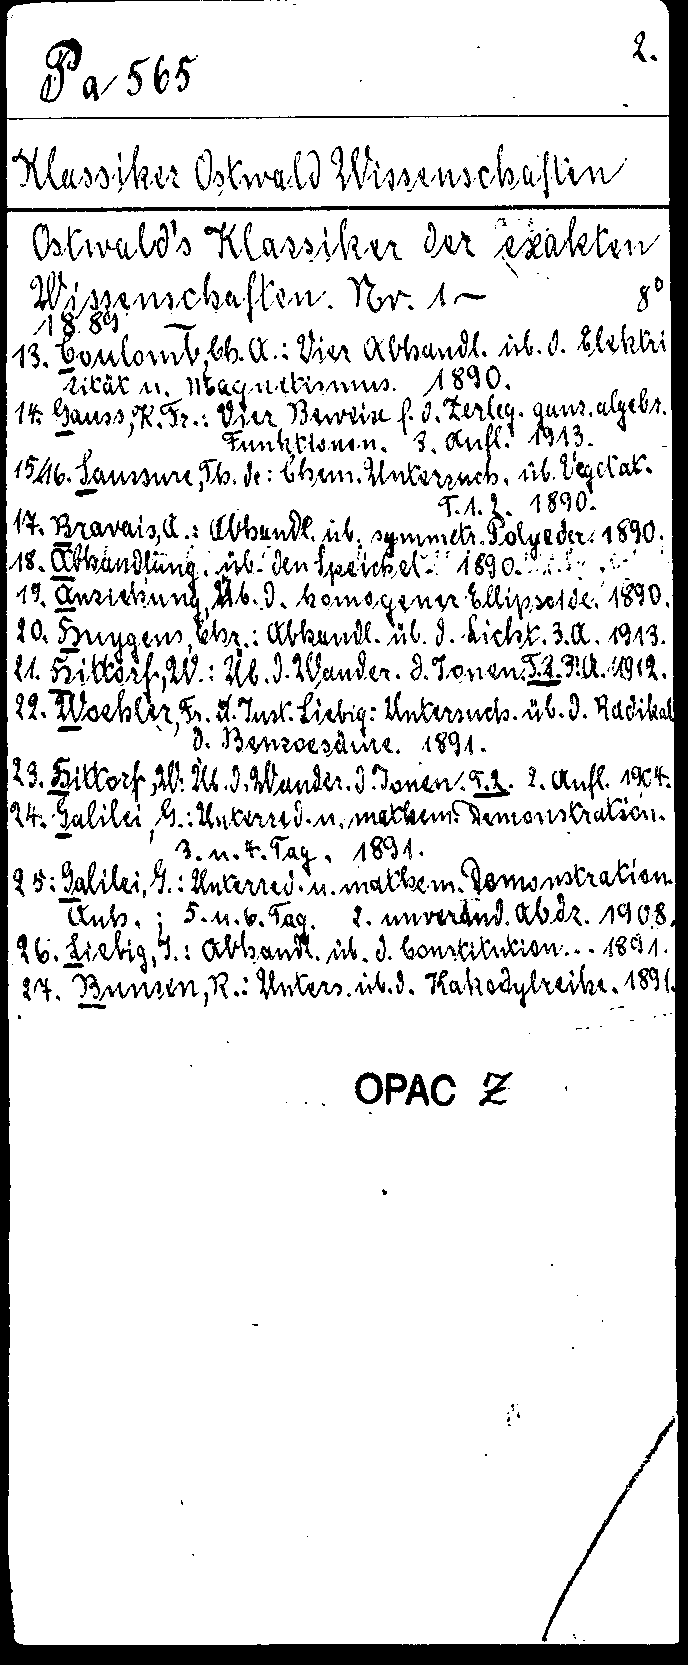 2.
Pa 565
Klassiker Ostwald Wissenschaften
Ostwald's Klassiker der exakten
Wissenschaften. Nr. 1— 8°
1889
13. Coulomb, Ch. A.: Vier Abhandl. üb. d. Elektri
zität u. Magnetismus. 1890.
14. Gauss, K. Fr.: Vier Beweise f. d. Zerleg. ganz. algebr.
Funktionen. 3. Aufl. 1913.
15/16. Saussure, Th. de: Chem. Untersuch. üb. Vegetat.
T. 1. 2. 1890.
17. Bravais, A.: Abhandl. üb. symmetr. Polyeder. 1890.
18. Abhandlung. üb. den Speichel. 1890.
19. Anziehung, Üb. d. homogener Ellipsoide. 1890.
20. Huygens, Chr.: Abhandl. üb. d. Licht. 3. A. 1913.
21. Hittorf, W.: Üb. d. Wander. d. Ionen. 1912.
22. Woehler, Fr. u. Just. Liebig: Untersuch. üb. d. Radikal
d. Benzoesäure. 1891.
23. Hittorf, W. Üb. d. Wander. d. Ionen. T. 2. 2. Aufl. 1904.
24. Galilei, G.: Unterred. u. mathem. Demonstration.
3. u. 4. Tag. 1891.
25. Galilei, G.: Unterred. u. mathem. Demonstration.
Anh. ; 5. u. 6. Tag. 2. unveränd. Abdr. 1908.
26. Liebig, J.: Abhandl. üb. d. Constitution... 1891.
27. Bunsen, R.: Unters. üb. d. Kakodylreihe. 1891.
OPAC Z